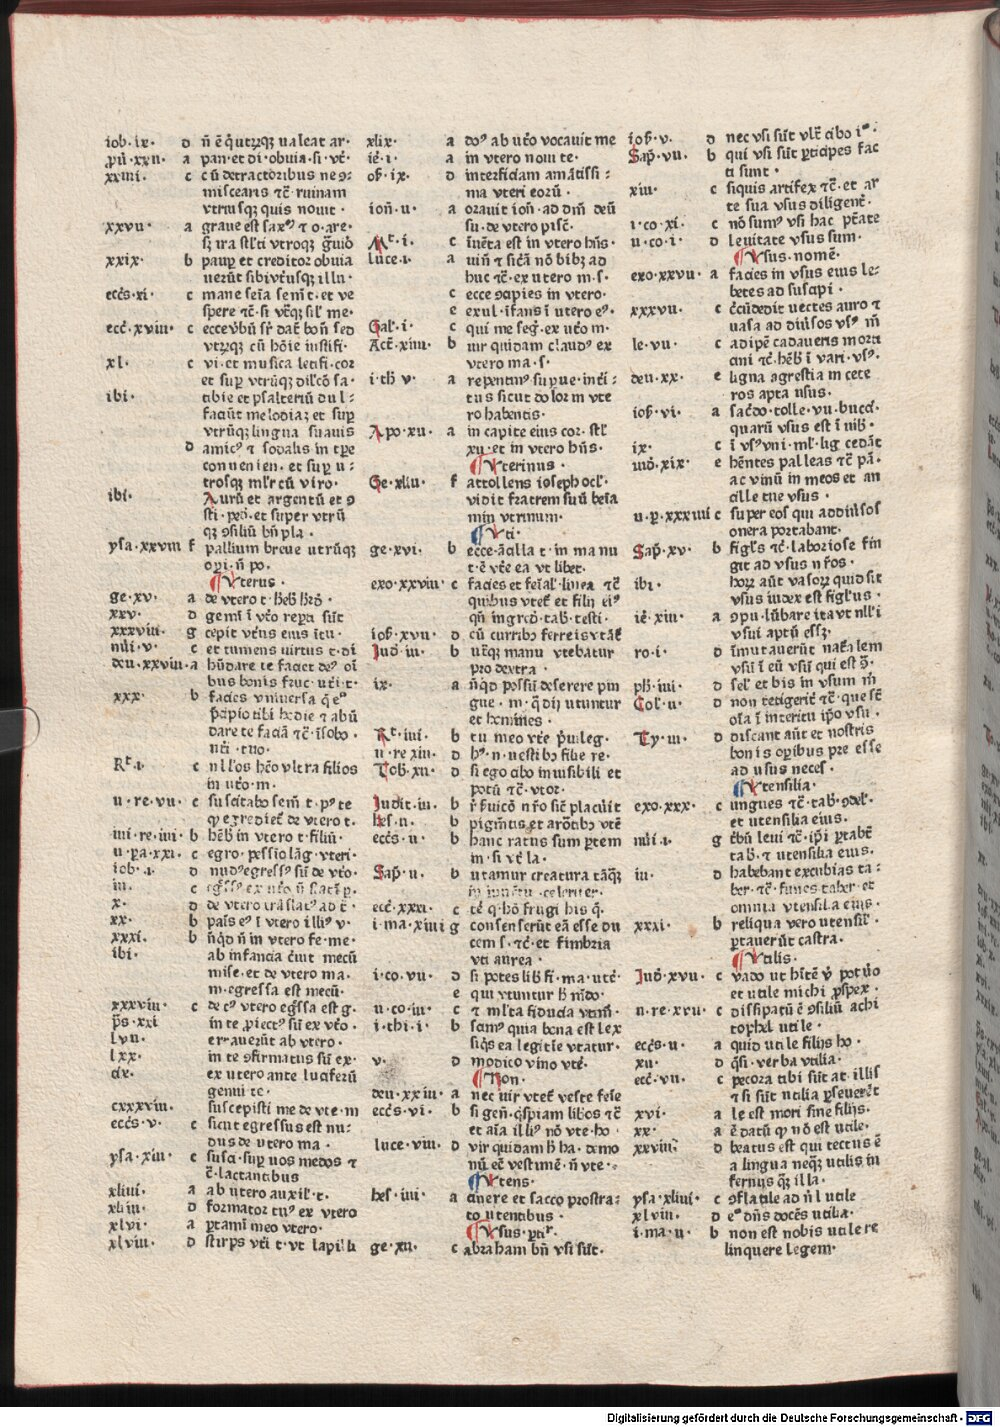 iob·ix· d n̄ ē q̇ utrūqꝫ ualeat ar·
pū·xxii· a pan·et di·obuia·si·vt̄·
xxiiii· c cū detractoribus ne
misceariz tc̄· ruinam
vtriusqꝫ quis nouit·
xxvii· a graue est saxū
sꝫ ira stl'ti vtroqꝫ
xxix· b paup et creditoz obuia
uerūt sibi vtrūsqꝫ illu·
ecc̄s·xi· c mane seīa sem̄ t·et ve
spere tc̄·si vt̄qꝫ sil' me·
ecc̄·xviii· c ecce vbū sr̄ dat̄ bon̄ sed
vtrqꝫ cū hōie iustifi·
xl· c vi·et musica letifi·coz
et sup vtrūqꝫ dil'cō sa·
ibi· tibie et psalteriū du l·
faciūt melodiaz et sup
vtrūqꝫ lingua suauis
d amic⁹ t sodalis in tpe
conuenien·et sup u-
trosqꝫ ml'r cū viro·
ibi· Aurū et argentū et
sti·ped·et super vtrū
qꝫ ꝯsiliū bn̄ pla·
ysa·xxviii f pallium breue utrūqꝫ
opi·n̄ po·
Uterus·
ge·xv· a de vtero t·
xxv· d gemi ī vt̄o repti sūt
xxxviii· g cepit
nūi·v· c et tumens uirtus t·di
deu·xxviii·a hūdare te faciet de⁹ oī
bus bonis fruc·ut̄i·t·
xxx· b facies vniuersa
p̄cipio tibi hodie t abū
dare te faciā tc̄·
ut̄i·tuo·
Rt·i· c
in ut̄o·m·
ii·re·vii· c suscitabo sem̄ t·p⁹ te
ꝙ egrediet̄ de vtero t·
iiii·re·iiii· b hēb̄ in vtero t·filiū·
ii·pa·xxi· c egro·pessio lāg·vteri·
iob·i· d nud⁹ egress⁹ sū de vt̄o·
iii· c
x· d de vtero trāslat⁹ ad t̄·
xx· b
xxxi· b n̄qd n̄ in vtero fe·me·
ibi· ab infancia c̄iut mecū
mise·et de vtero ma·
m·egressa est mecū·
xxxviii· c de c⁹ vtero eḡssa est g·
ps̄·xxi in te piect⁹ sū ex vt̄o·
lvii· errauerūt ab vtero·
lxx· in te ꝯfirmatus sū ex·
cix· ex utero ante luciferū
genui te·
cxxxviii· suscepisti me de vte·m
ecc̄s·v· c sicut egressus est nu-
dus de utero ma·
ysa·xiii· c
c̄·lactantibus
xliiii· a ab utero auxil'·t·
xliiii· d formator tu⁹ ex vtero
xlvi· a ptami meo vtero·
xlviii· d stirps vt̄i t·vt lapilli
xlix· a do⁹ ab ut̄o vocauit me
iē·i· a in vtero noui te·
os̄·ix· d interficiam amātissi-
ma vteri eorū·
ion̄·ii· a orauit ion̄·ad dm̄ deū
su·de vtero pisc̄·
Mt·i· c īuēta est in vtero hn̄s·
luce·i· a uin̄ t sic̄ā nō bibꝫ ad
huc tc̄·ex utero m·s·
c ecce ꝯcipies in vtero·
e exul·īfans ī utero e⁹·
Gal'·i· c qui me seḡ·ex ut̄o m·
Act̄·xiiii· b uir quidam claud⁹ ex
vtero ma·s·
i·th̄ v· a repentin⁹ supue·intī-
tus sicut dolor m vte
ro habentis·
Apo·xii· a in capite eius coz·stl'
xii·et in vtero hn̄s·
Uterinus·
Ge·xliii· f attollens ioseph ocl'·
vidit fratrem suū beīa
min vterinum·
Uti·
ge·xvi· b ecce ācilla t·in manu
t·ē vt̄e ea vt libet·
exo·xxviii· c facies et feīal'·linea tc̄
quibus vtet̄ et filij ei⁹
qn̄ ingrēd·tab·testi·
ios̄·xvii· d cū curribꝫ ferreis vtāt̄
Iud̄·iii· b ut̄qꝫ manu vtebatur
pro dextra·
ix· a n̄qd possū deserere pin
gue·m·q dij utuntur
et homines·
Rt·iiii· b tu meo vt̄e puileg·
ii·re·xiii· d h⁹·n·uestibꝫ filie re·
Tob̄·xii· d si ego cibo inuisibili et
potū tc̄·vtor·
Iudit·iii· b
hes·ii· b pigm̄tis et arōtibꝫ vtē
ecc̄s·ii· b hanc ratus sum ptem
m·si vt̄ la·
Sap̄·ii· b utamur creatura tāqꝫ
in iuuēt̄u·celeriter·
ecc̄·xxxi· c tē q·hō frugi his q̄·
i·ma·xiiii g consenserūt eā esse du
cem s·tc̄·et fimbria
vti aurea·
i·co·vii· d si potes lib̄ fi·ma·ute·
e qui vtuntur h̄ mūdo·
ii·co·iii· c t ml'ta fiducia vtim̄·
i·thi·i· b scim⁹ quia bona est lex
siqs ea legitīe vtatur·
v· d modico vino vtē·
Non·
deu·xxiii· a nec uir vtet̄ veste fese
ecc̄s·vi· b si gen̄·q̄spiam libos tc̄
et aīa illi⁹ nō vte·ho·
luce·viii· d vir quidam h̄ ha·demo
niū ec̄ vestimē·n̄ vte·
Utens·
hes·iiii· a cinere et sacco prostra-
to utentibus·
Usus·pti·
ge·xii· c abraham bn̄ vsi sūt·
ios̄·v· d nec vsi sūt vlt̄ cibo
Sap̄·vii· b qui vsi sūt pticipes fac
ti sunt·
xiii· c siquis artifex tc̄·et ar
te sua vsus diligent̄·
i·co·xi· c nō sum⁹ vsi hac ptate
ii·co·i· d leuitate vsus sum·
Usus·nomē·
exo·xxvii· a facies in vsus eius le-
betes ad suscipi·
xxxvii· c c̄cūdedit uectes auro t
uasa ad diūsos vs⁹ m̄
le·vii· c adipē cadaueris morti
cini tc̄·hēb̄ ī vari·vs⁹·
deu·xx· e ligna agrestia m cete
ros apta usus·
ios̄·vi· a sac̄do·tolle·vii·bucc̄·
quarū vsus est ī iub̄·
ix· c ī vs⁹ vni·ml'·lig cedāt
iud̄·xix· e hēntes palleas tc̄ pā·
ac vinū in meos et an
cille tue vsus·
ii·p·xxxiiii c super eos qui ad diūsos
onera portabant·
Sap̄·xv· b figl's tc̄·laboriose fin
git ad vsus nr̄os·
ibi· horz aūt vasorz quid sit
vsus iudex est figl'us·
iē·xiii· a ꝯpu·lūbare ita vt nll'i
vsui aptū essꝫ·
ro·i· d īmutauerūt nat̄alem
vsū ī eū vsū qui est
ph̄·iiii· d sel' et bis in vsum m̄
Col'·ii· d non tetigerit̄ tc̄·que st̄
oīa ī interitū ipō vsu·
Ty·iii· d discant aūt et nostris
bonis opibus pre esse
ad usus neces̄·
Utensilia·
exo·xxx· c ungues tc̄·tab·
et utensilia eius·
nūi·i· g c̄bū leui tc̄·ip̄i ptabt̄
tab·t utensilia eius·
iii· d habebant excubias ta-
ber·tc̄·funes taber·et
omnia vtensilia eius·
xxxi· b reliqua vero utensil'·
ptauerūt castra·
Utilis·
Iud̄·xvii· c
et utile michi pspex·
ii·re·xvii· c dissipatū ē ꝯsiliū achi
tophel utile·
ecc̄s·ii· a quid utile filijs ho·
xii· d q̄si·verba vtilia·
ecc̄·vii· c pecora tibi sūt at·illis
t si sūt utilia pseuerēt
xvi· a le est mori sine filijs·
xx· a ē datū ꝙ nō est utile·
xxviii· d beatus est qui tectus ē
a lingua neqꝫ utilis in
fernus qꝫ illa·
ysa·xliiii· c ꝯflatile ad n̄l utile
xlviii· d e⁹ dn̄s docēs utilia·
i·ma·ii· b non est nobis utile re
linquere legem·
Digitalisierung gefördert durch die Deutsche Forschungsgemeinschaft - DFG